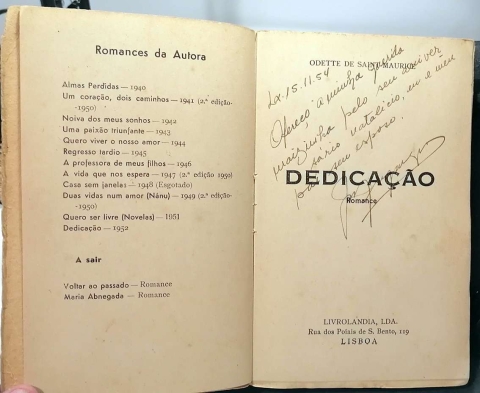 Romances da Autora
Almas Perdidas — 1940
Um coração, dois caminhos — 1941 (2.ª edição-
-1950)
Noiva dos meus sonhos — 1942
Uma paixão triunfante — 1943
Quero viver o nosso amor — 1944
Regresso tardio — 1945
A professora de meus filhos — 1946
A vida que nos espera — 1947 (2.ª edição 1950)
Casa sem janelas — 1948 (Esgotado)
Duas vidas num amor (Nánu) — 1949 (2.ª edição-
-1950)
Quero ser livre (Novelas) — 1951
Dedicação — 1952
A sair
Voltar ao passado — Romance
Maria Abnegada — Romance
ODETTE DE SAINT-MAURICE
Lx. 15.11.54
Ofereço à minha querida
mãizinha pelo seu aniver
sário natalício, eu e meu
esposo.
DEDICAÇÃO
Romance
LIVROLANDIA, LDA.
Rua dos Poiais de S. Bento, 119
LISBOA